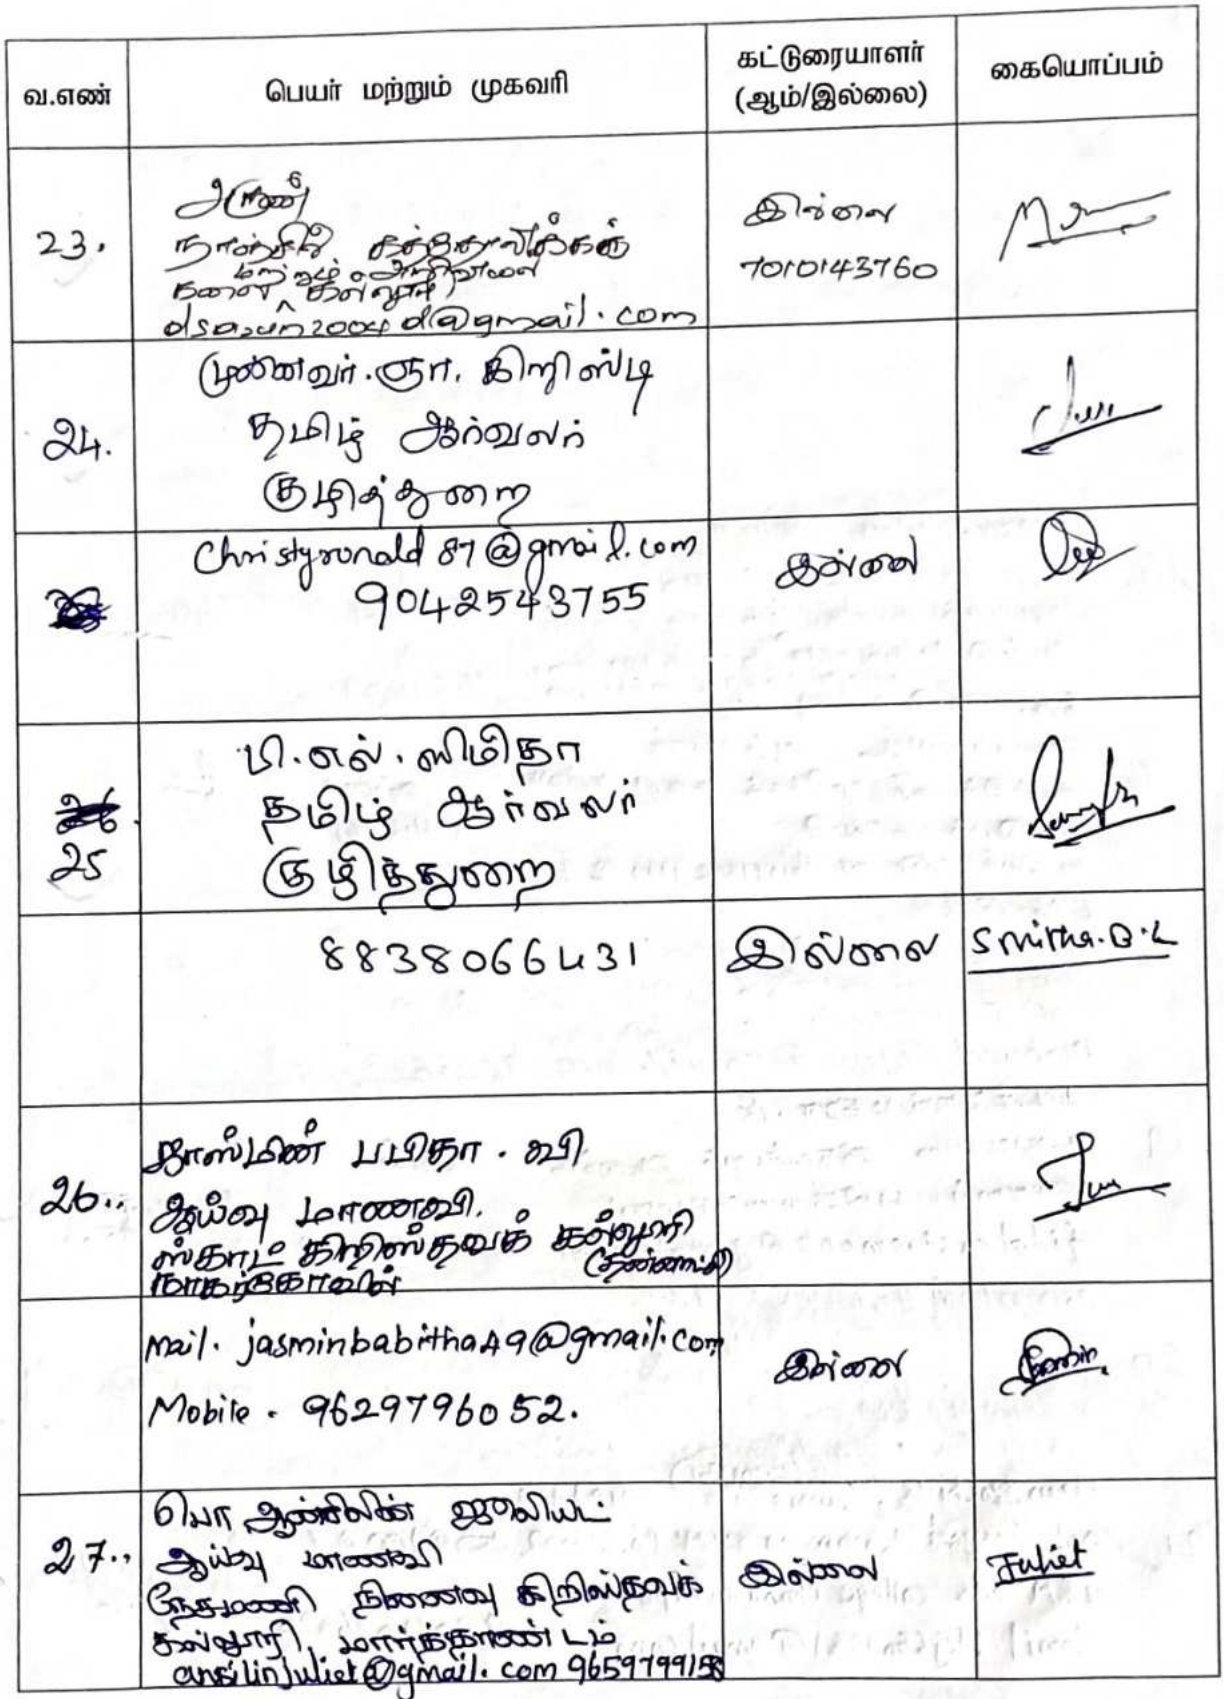 வ.எண் பெயர் மற்றும் முகவரி கட்டுரையாளர் (ஆம்/இல்லை) கையொப்பம்
23.
அருண்
நாஞ்சில் கத்தோலிக்கக்
கலை மற்றும் அறிவியல் கல்லூரி
இல்லை
7010143760
24.
முனைவர்.ஞா. கிறிஸ்டி
தமிழ் ஆர்வலர்
குழித்துறை
Christyronald87@gmail.com
9042543755
இல்லை
25
பி.எல்.ஸ்மிதா
தமிழ் ஆர்வலர்
குழித்துறை
8838066431
இல்லை
Smitha.B.L
26..
ஜாஸ்மின் பபிதா . வி
ஆய்வு மாணவி.
ஸ்காட் கிறிஸ்தவக் கல்லூரி
(தன்னாட்சி)
நாகர்கோவில்
Mail. jasminbabitha49@gmail.com
Mobile. 9629796052.
இல்லை
27..
பொ ஆன்சிலின் ஜூலியட்
ஆய்வு மாணவி
நேசமணி நினைவு கிறிஸ்தவக்
கல்லூரி, மார்த்தாண்டம்
ansilinjuliet@gmail.com
இல்லை
Juliet